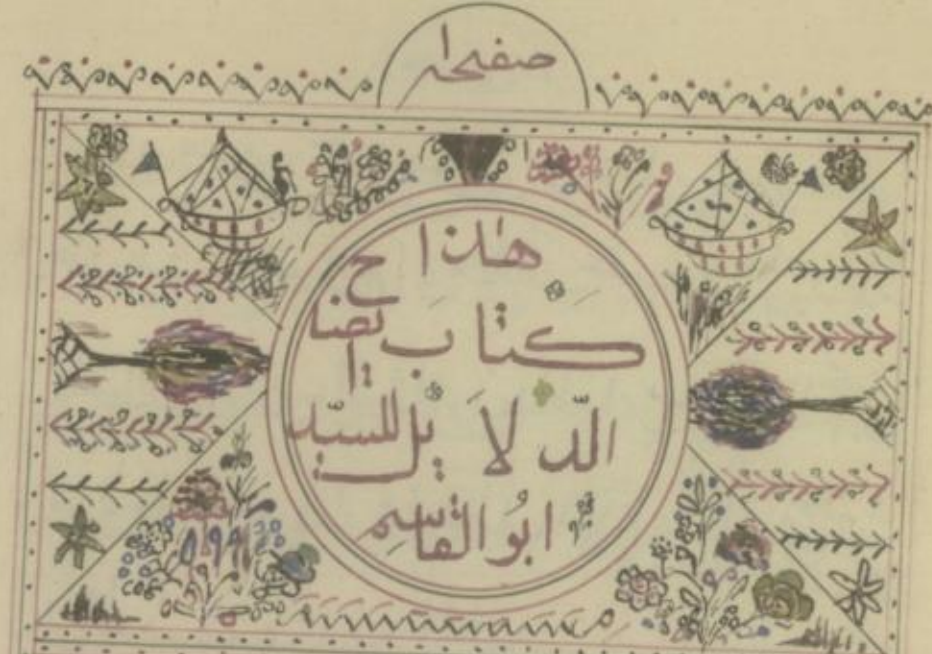 صفحہ ا
هٰذا
كتاب ايضاح
الدّلايل للسيّد
ابوُ القاسِم